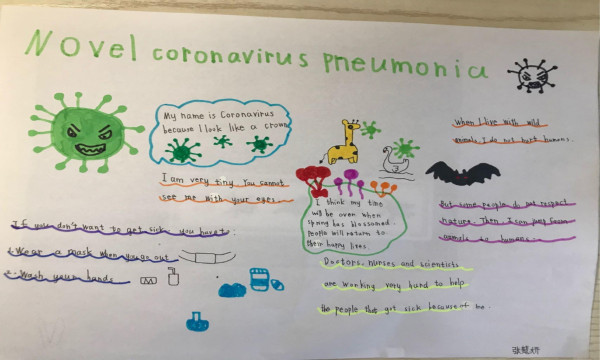 Novel coronavirus pneumonia
My name is Coronavirus
because I look like a crown
I am very tiny. You cannot
see me with your eyes.
If you don't want to get sick, you must:
1. Wear a mask when you go out
2. Wash your hands
I think my time
will be over when
spring has blossomed.
People will return to
their happy lives.
Doctors, nurses and scientists
are working very hard to help
the people that got sick because of me.
When I live with wild
animals, I do not hurt humans.
But some people do not respect
nature. Then I can jump from
animals to humans.